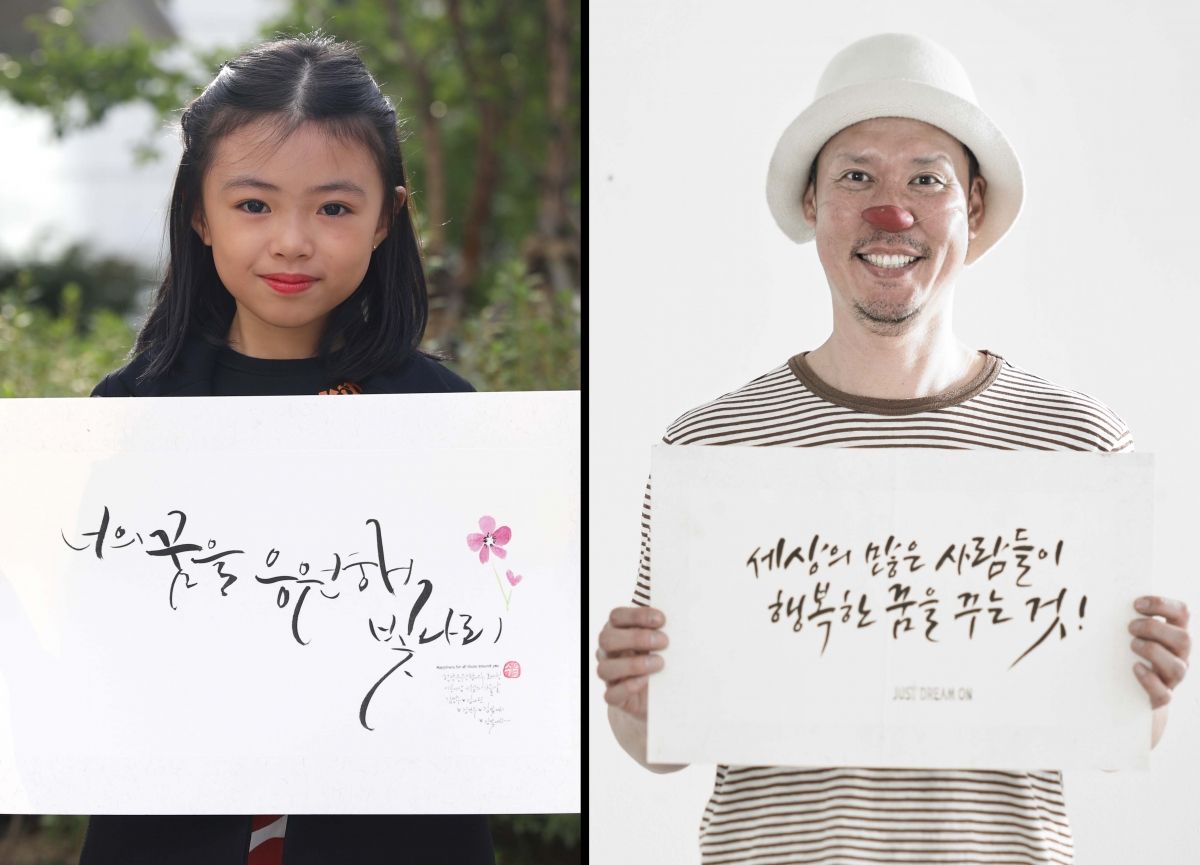 너의 꿈을 응원해
빛나리
Happiness for all those around you
세상의 많은 사람들이
행복한 꿈을 꾸는 것!
JUST DREAM ON